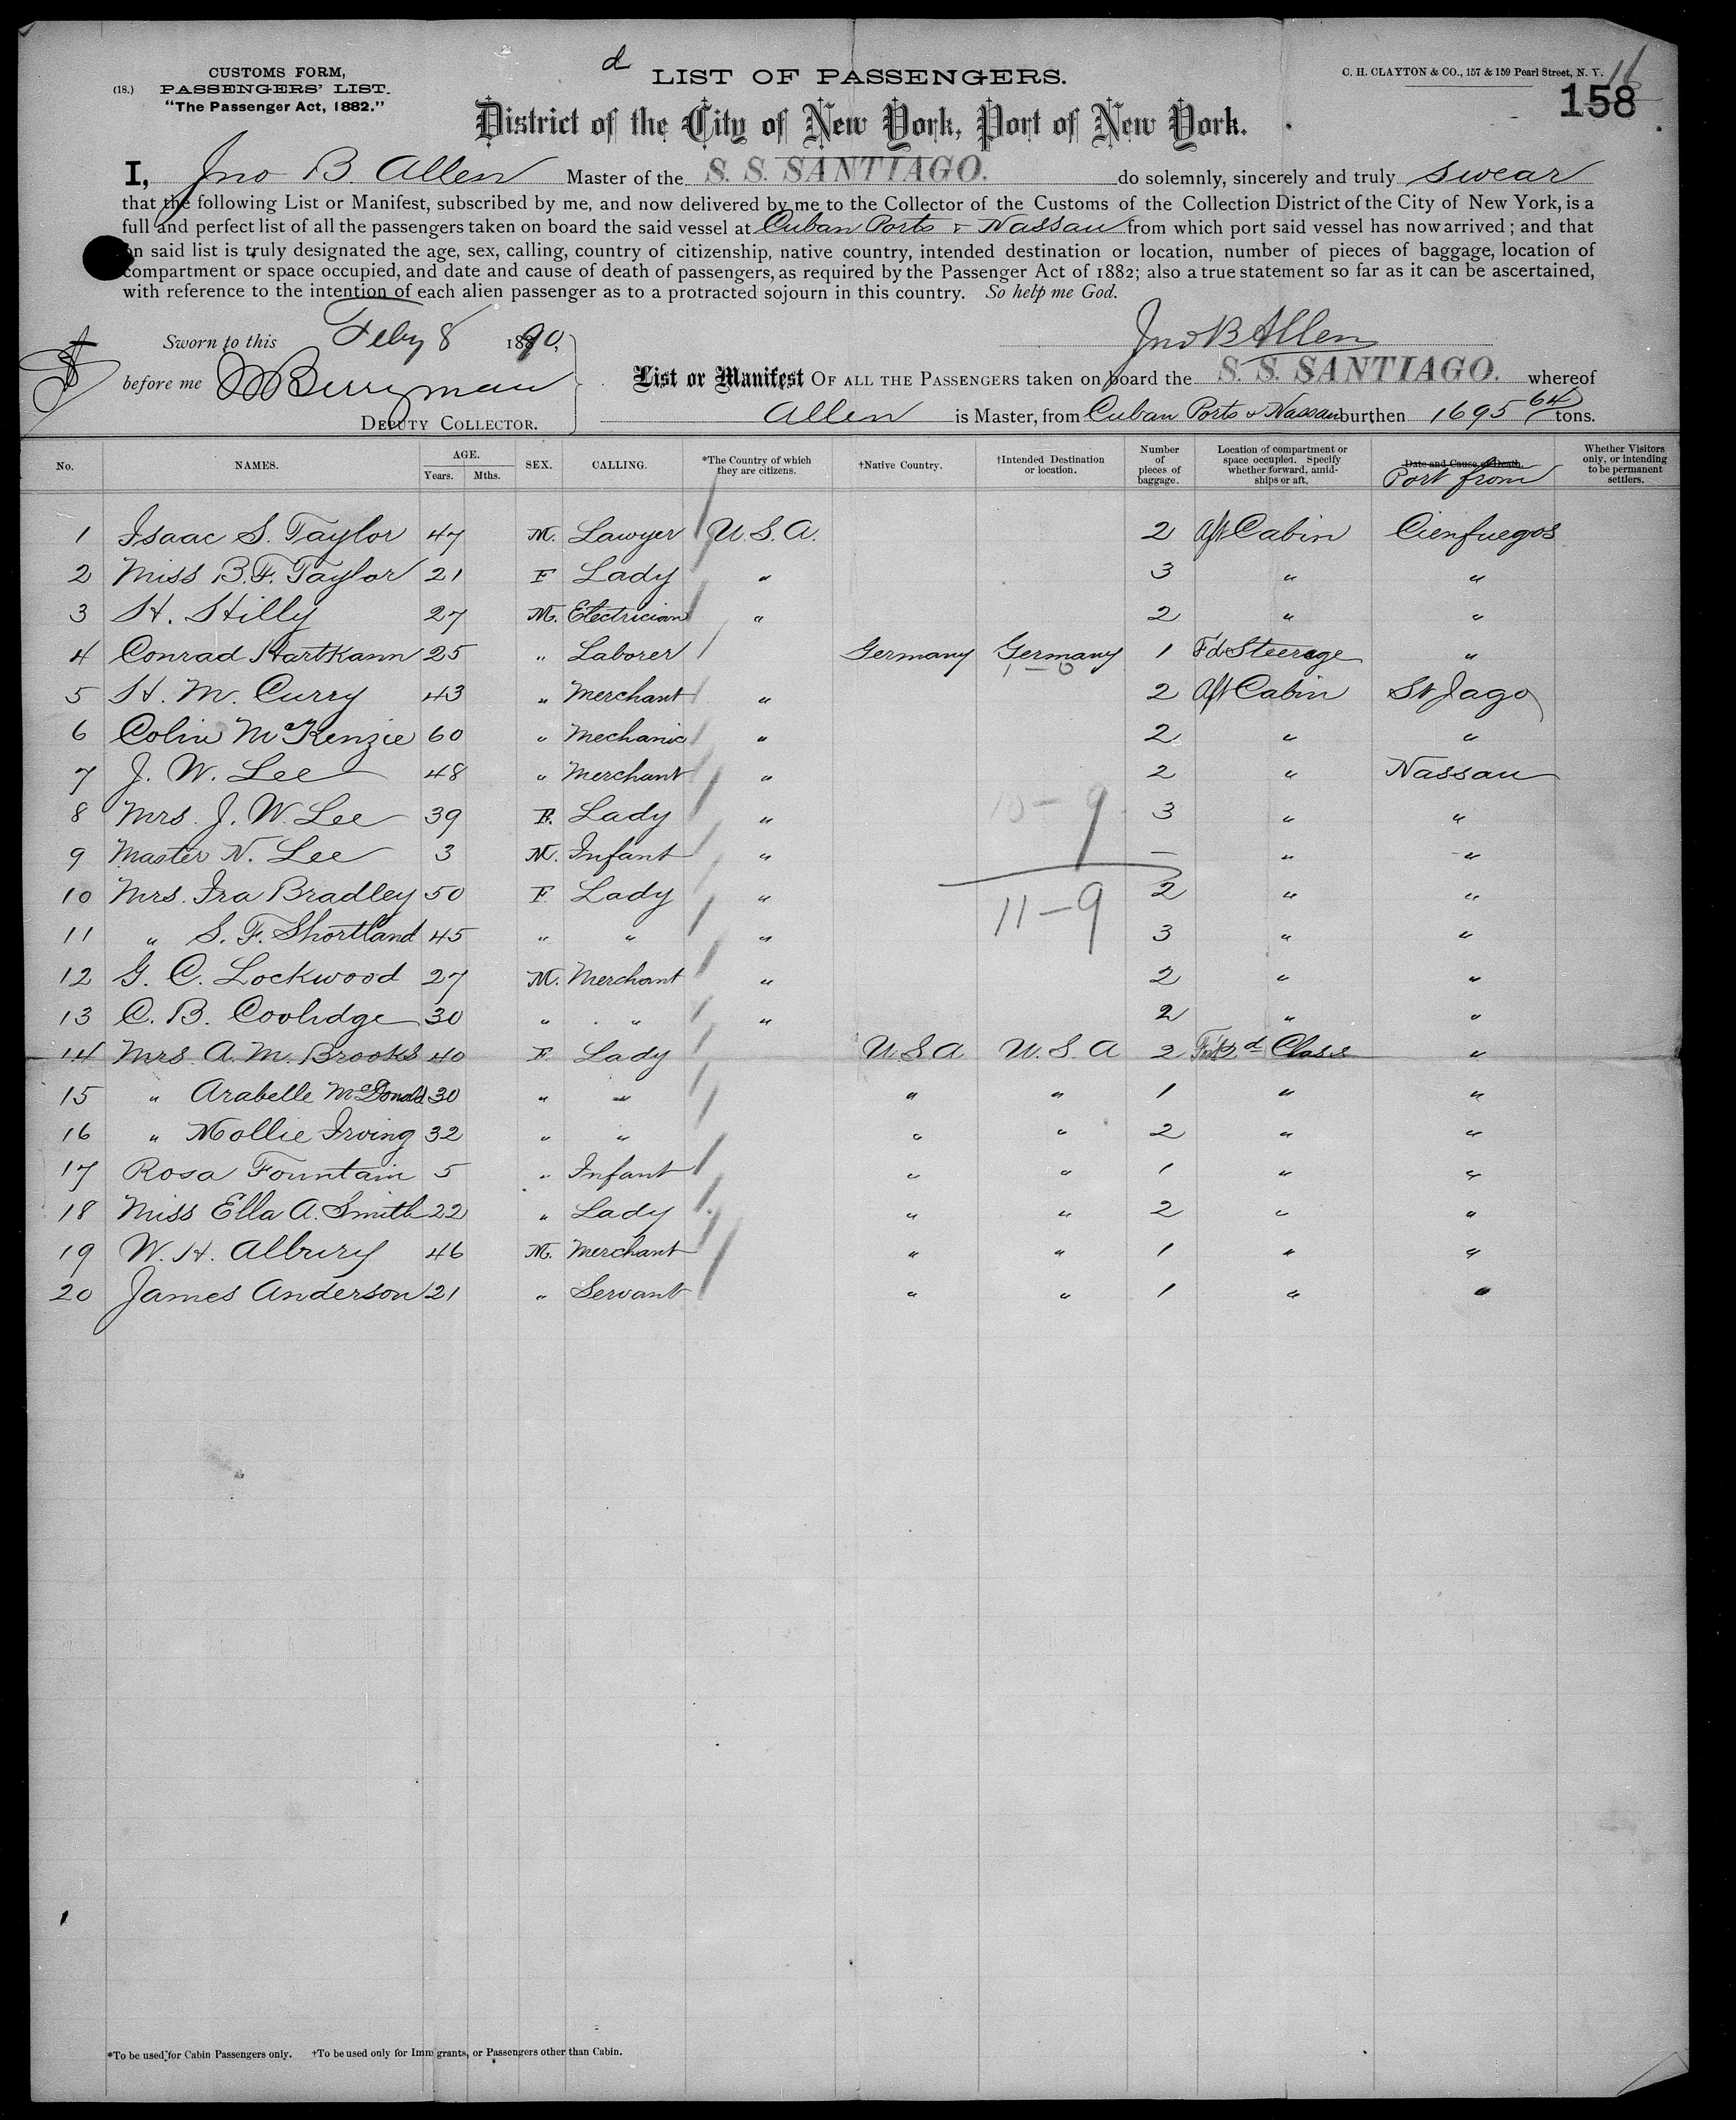 d
CUSTOMS FORM,
(18.) PASSENGERS' LIST.
"The Passenger Act, 1882."
LIST OF PASSENGERS.
C. H. CLAYTON & CO., 157 & 159 Pearl Street, N. Y.
158
District of the City of New York, Port of New York.
I, Jno B. Allen Master of the S. S. SANTIAGO. do solemnly, sincerely and truly swear
that the following List or Manifest, subscribed by me, and now delivered by me to the Collector of the Customs of the Collection District of the City of New York, is a
full and perfect list of all the passengers taken on board the said vessel at Cuban Ports & Nassau from which port said vessel has now arrived; and that
on said list is truly designated the age, sex, calling, country of citizenship, native country, intended destination or location, number of pieces of baggage, location of
compartment or space occupied, and date and cause of death of passengers, as required by the Passenger Act of 1882; also a true statement so far as it can be ascertained,
with reference to the intention of each alien passenger as to a protracted sojourn in this country. So help me God.
Sworn to this Feby 8 1890,
Jno B Allen
before me Berryman
DEPUTY COLLECTOR.
List or Manifest OF ALL THE PASSENGERS taken on board the S. S. SANTIAGO. whereof
Allen is Master, from Cuban Ports & Nassau burthen 1695 64 tons.
No. NAMES. AGE. Years. Mths. SEX. CALLING. *The Country of which they are citizens. †Native Country. †Intended Destination or location. Number of pieces of baggage. Location of compartment or space occupied. Specify whether forward, amidships or aft. Date and Cause of Death. Port from Whether Visitors only, or intending to be permanent settlers.
1 Isaac S. Taylor 47 M. Lawyer U.S.A. 2 Aft Cabin Cienfuegos
2 Miss B. F. Taylor 21 F Lady " 3 " "
3 H. Hilly 27 M. Electrician " 2 " "
4 Conrad Hartkann 25 " Laborer Germany Germany 1 Fd Steerage "
1 — 0
5 H. M. Curry 43 " Merchant " 2 Aft Cabin St Jago
6 Colin McKenzie 60 " Mechanic " 2 " "
7 J. W. Lee 48 " Merchant " 2 " Nassau
8 Mrs. J. W. Lee 39 F. Lady " 3 " "
10 — 9
9 Master N. Lee 3 M. Infant " — " "
10 Mrs. Ira Bradley 50 F. Lady " 2 " "
11 — 9
11 " S. F. Shortland 45 " " " 3 " "
12 G. C. Lockwood 27 M. Merchant " 2 " "
13 C. B. Coolidge 30 " " " 2 " "
14 Mrs. A. M. Brooks 40 F. Lady U.S.A. U.S.A 2 2d Class "
15 " Arabelle McDonald 30 " " " " 1 " "
16 " Mollie Irving 32 " " " " 2 " "
17 Rosa Fountain 5 " Infant " " 1 " "
18 Miss Ella A. Smith 22 " Lady " " 2 " "
19 W. H. Albury 46 M. Merchant " " 1 " "
20 James Anderson 21 " Servant " " 1 " "
*To be used for Cabin Passengers only. †To be used only for Immigrants, or Passengers other than Cabin.